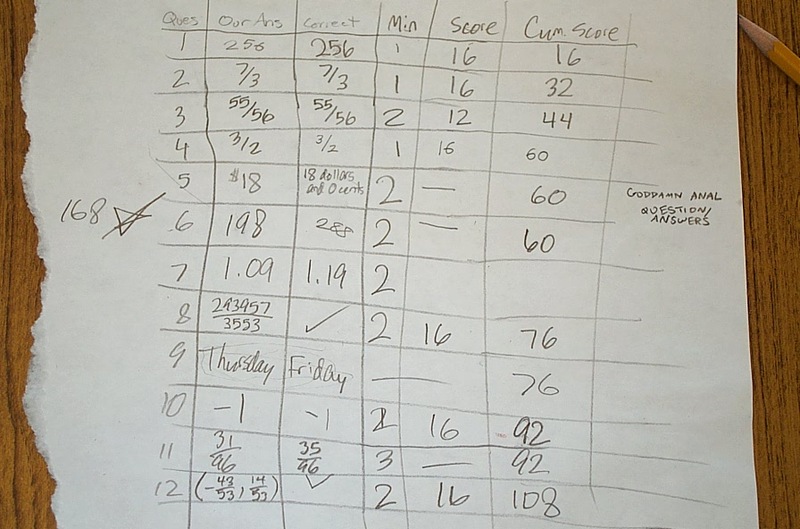 Ques Our Ans Correct Min Score Cum. Score
1 256 256 1 16 16
2 7/3 7/3 1 16 32
3 55/56 55/56 2 12 44
4 3/2 3/2 1 16 60
5 $18 18 dollars and 0 cents 2 — 60 GODDAMN ANAL
QUESTION/
ANSWERS
168 6 198 288 2 — 60
7 1.09 1.19 2
8 243957/3553 ✓ 2 16 76
9 Thursday Friday — 76
10 -1 -1 16 92
11 31/96 35/96 3 — 92
12 (-43/53, 14/53) ✓ 2 16 108